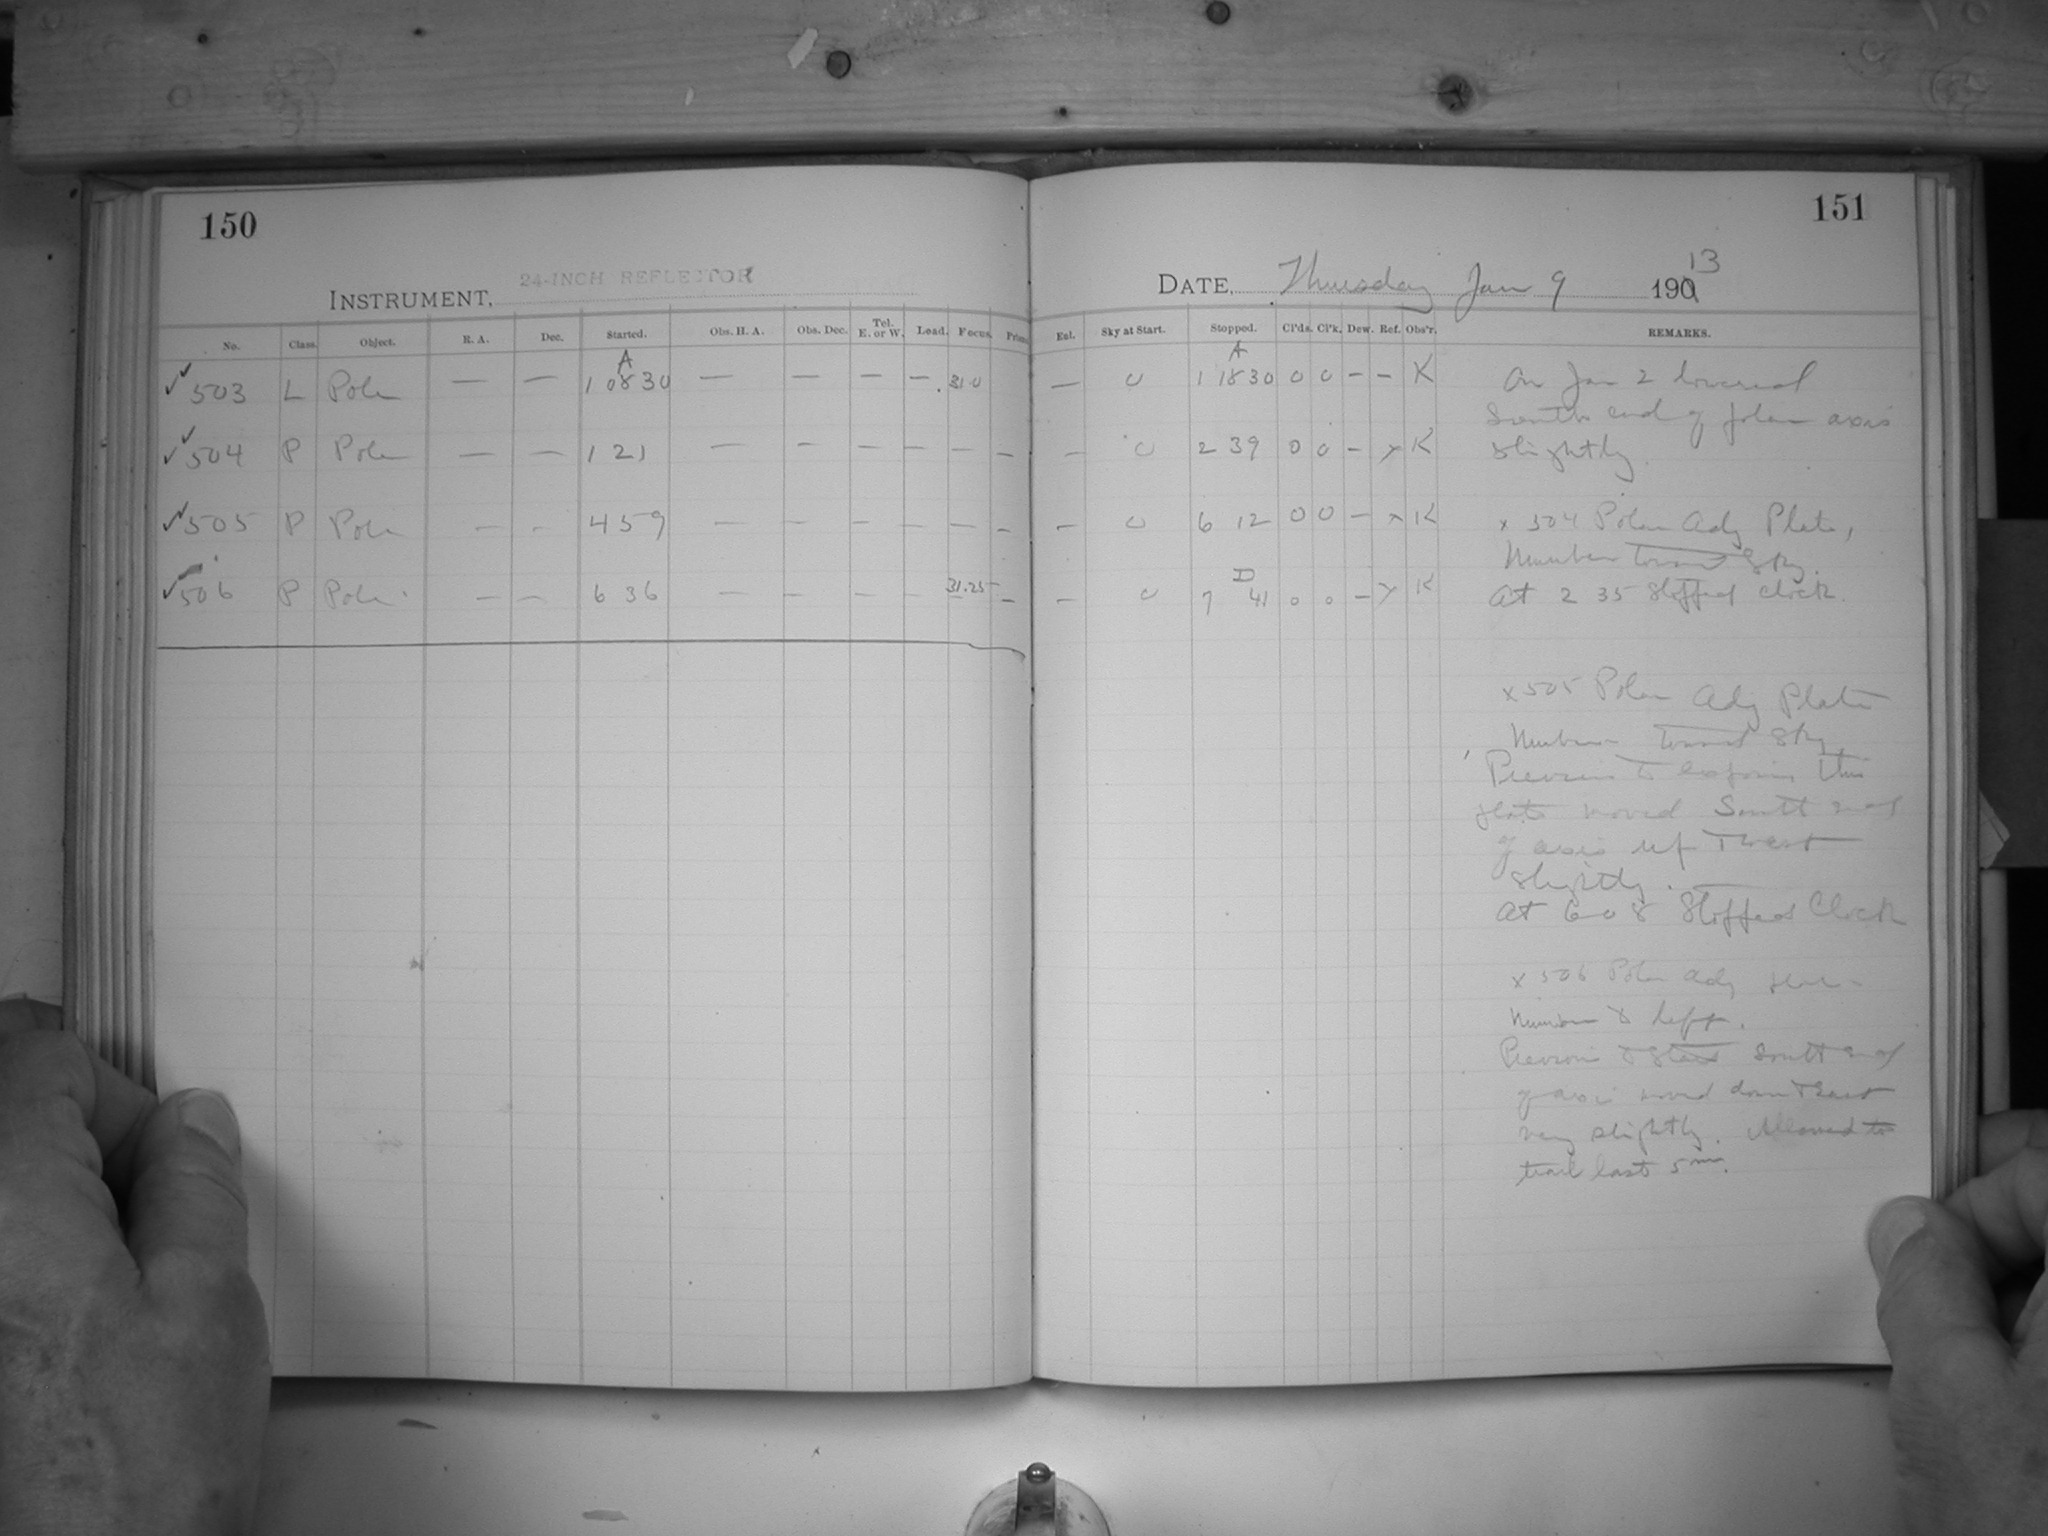 150
INSTRUMENT, 24-INCH REFLECTOR
No. Class. Object. R. A. Dec. Started. Obs. H. A. Obs. Dec. Tel. E. or W. Load. Focus. Prism.
A
503 L Pole — — 1 08 30 — — — — 31.0
504 P Pole — — 1 21 — — — — — —
505 P Pole — — 4 59 — — — — — —
506 P Pole — — 6 36 — — — — 31.25 —
151
DATE, Thursday Jan 9 1913
Ent. Sky at Start. Stopped. Cl'ds. Cl'k. Dew. Ref. Obs'r. REMARKS.
A
— 0 1 18 30 0 0 — — K
— 0 2 39 0 0 — x K
— 0 6 12 0 0 — x K
D
— 0 7 41 0 0 — x K
On Jan 2 lowered
South end of polar axis
slightly.
x 504 Polar Adj Plate,
Number toward Sky.
At 2 35 stopped clock.
x 505 Polar Adj Plate
Number toward Sky
Previous to exposing this
plate moved South end
of axis up + west
slightly.
At 6 08 Stopped Clock
x 506 Polar Adj
Number to left.
Previous to start South end
of axis moved down + east
very slightly. Allowed to
trail last 5 m.